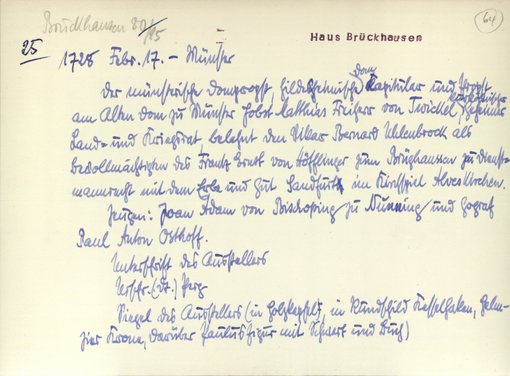 Brückhausen 80/15
64
Haus Brückhausen
25
1728 Febr. 17. – Münster
Der münsterische Dompropst, hildesheimische Dom Kapitular und Propst
am Alten Dom zu Münster Jobst Matthias Freiherr von Twickel, Geheimer
Land- und Kriegsrat, belehnt den Vikar Bernard Uhlenbrock als
Bevollmächtigten des Frantz Ernst von Höfflinger zum Brüghausen zu Dienst-
mannrecht mit dem Erbe und Gut Sandfurth im Kirchspiel Alverskirchen.
Zeugen: Joan Adam von Bischoping zu Nünning und Gograf
Paul Anton Osthoff.
Unterschrift des Ausstellers
Urschr. (dt.) Perg
Siegel des Ausstellers (in Holzkapsel, in Rundschild Kesselhaken, Helm-
zier Krone, darüber Paulusfigur mit Schwert und Buch)